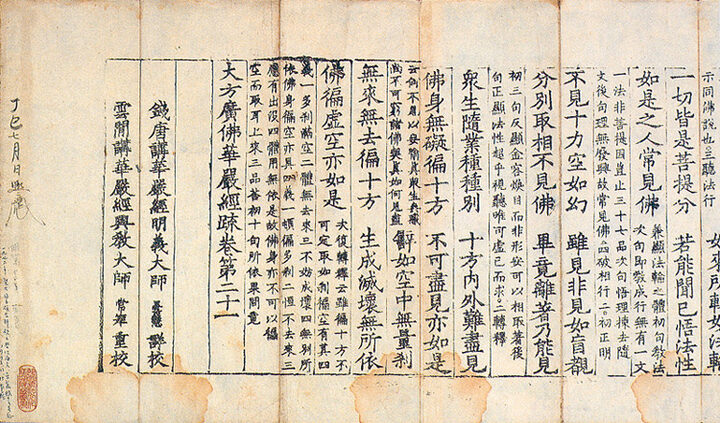 示同佛說也三聽法行
如來所轉妙法輪
一切皆是菩提分　若能聞已悟法性
如是之人常見佛
兼顯法輪之體初句教法
次句即教成行無有一文
一法非菩提因豈止三十七品次句悟理揀去隨
文後句理無廢興故常見佛四破相行二初正明
不見十力空如幻　雖見非見如盲覩
分別取相不見佛　畢竟離著乃能見
初三句反顯金容煥目而非形安可以相取著後
句正顯法性超乎視聽唯可虛己而求二轉釋
衆生隨業種種別　十方內外難盡見
佛身無礙徧十方　不可盡見亦如是
尚不可窮諸佛契真如何見盡
譬如空中無量剎
無來無去徧十方　生成滅壞無所依
佛徧虛空亦如是
次後轉釋云雖徧十方不
可定取如剎徧空有其四
義一多剎滿空二體無去來三不妨成壞四無別所
依佛身徧空亦具四義一頓徧多剎二恒不去來三
應有出沒四體用無依是故佛身亦不可以徧
空而取耳上來三品答初十句所依果問竟
大方廣佛華嚴經疏卷第二十一
錢唐講華嚴經明義大師　曇慧　詳校
雲間講華嚴經興敎大師　常雄　重校
丁巳七月日